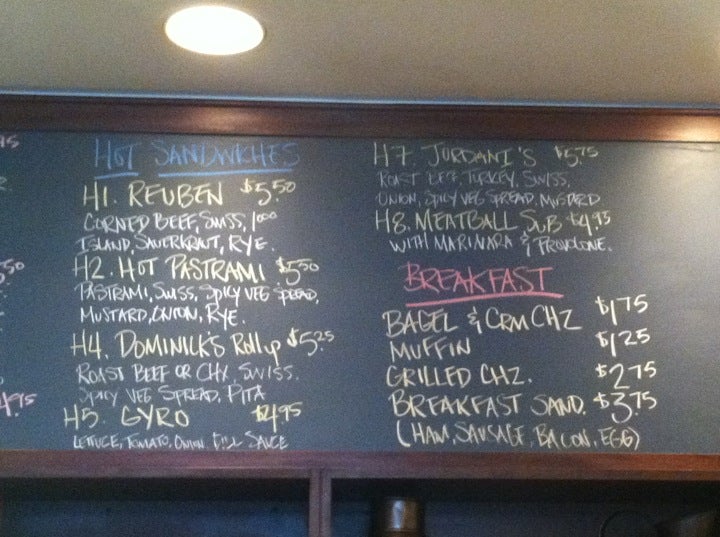 HOT SANDWICHES
H1. REUBEN $5.50
CORNED BEEF, SWISS, 1000
ISLAND, SAUERKRAUT, RYE.
H2. HOT PASTRAMI $5.50
PASTRAMI, SWISS, SPICY VEG SPREAD,
MUSTARD, ONION, RYE.
H4. DOMINICK'S Roll up $5.25
ROAST BEEF OR CHX. SWISS.
SPICY VEG SPREAD, PITA
H5. GYRO $4.95
LETTUCE, TOMATO, ONION, SAUCE
H7. JORDANI'S $5.75
ROAST BEEF, TURKEY, SWISS,
ONION, SPICY VEG SPREAD, MUSTARD
H8. MEATBALL SUB $4.95
WITH MARINARA & PROVOLONE.
BREAKFAST
BAGEL & CRM CHZ $1.75
MUFFIN $1.25
GRILLED CHZ. $2.75
BREAKFAST SAND. $3.75
(HAM, SAUSAGE, BACON, EGG)